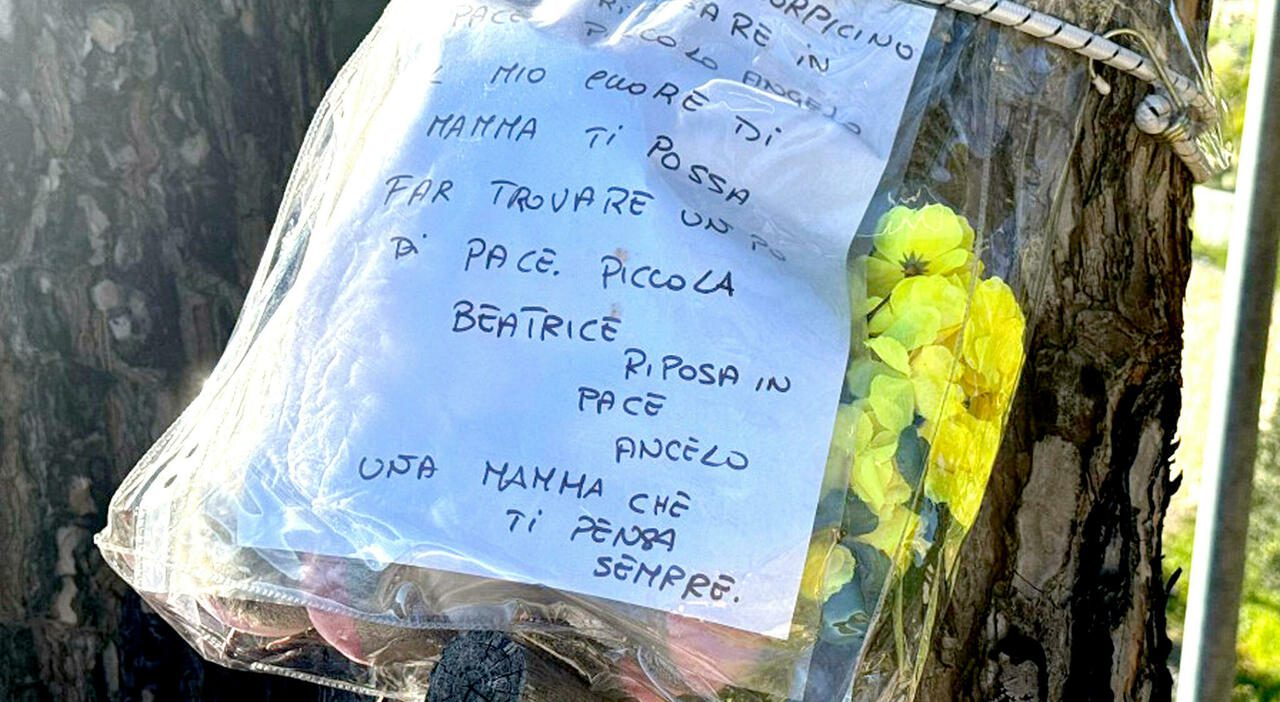 CORPICINO
PACE RIPOSARE IN
PICCOLO ANGELO
IL MIO CUORE DI
MAMMA TI POSSA
FAR TROVARE UN PO
DI PACE. PICCOLA
BEATRICE
RIPOSA IN
PACE
ANGELO
UNA MAMMA CHE
TI PENSA
SEMPRE.